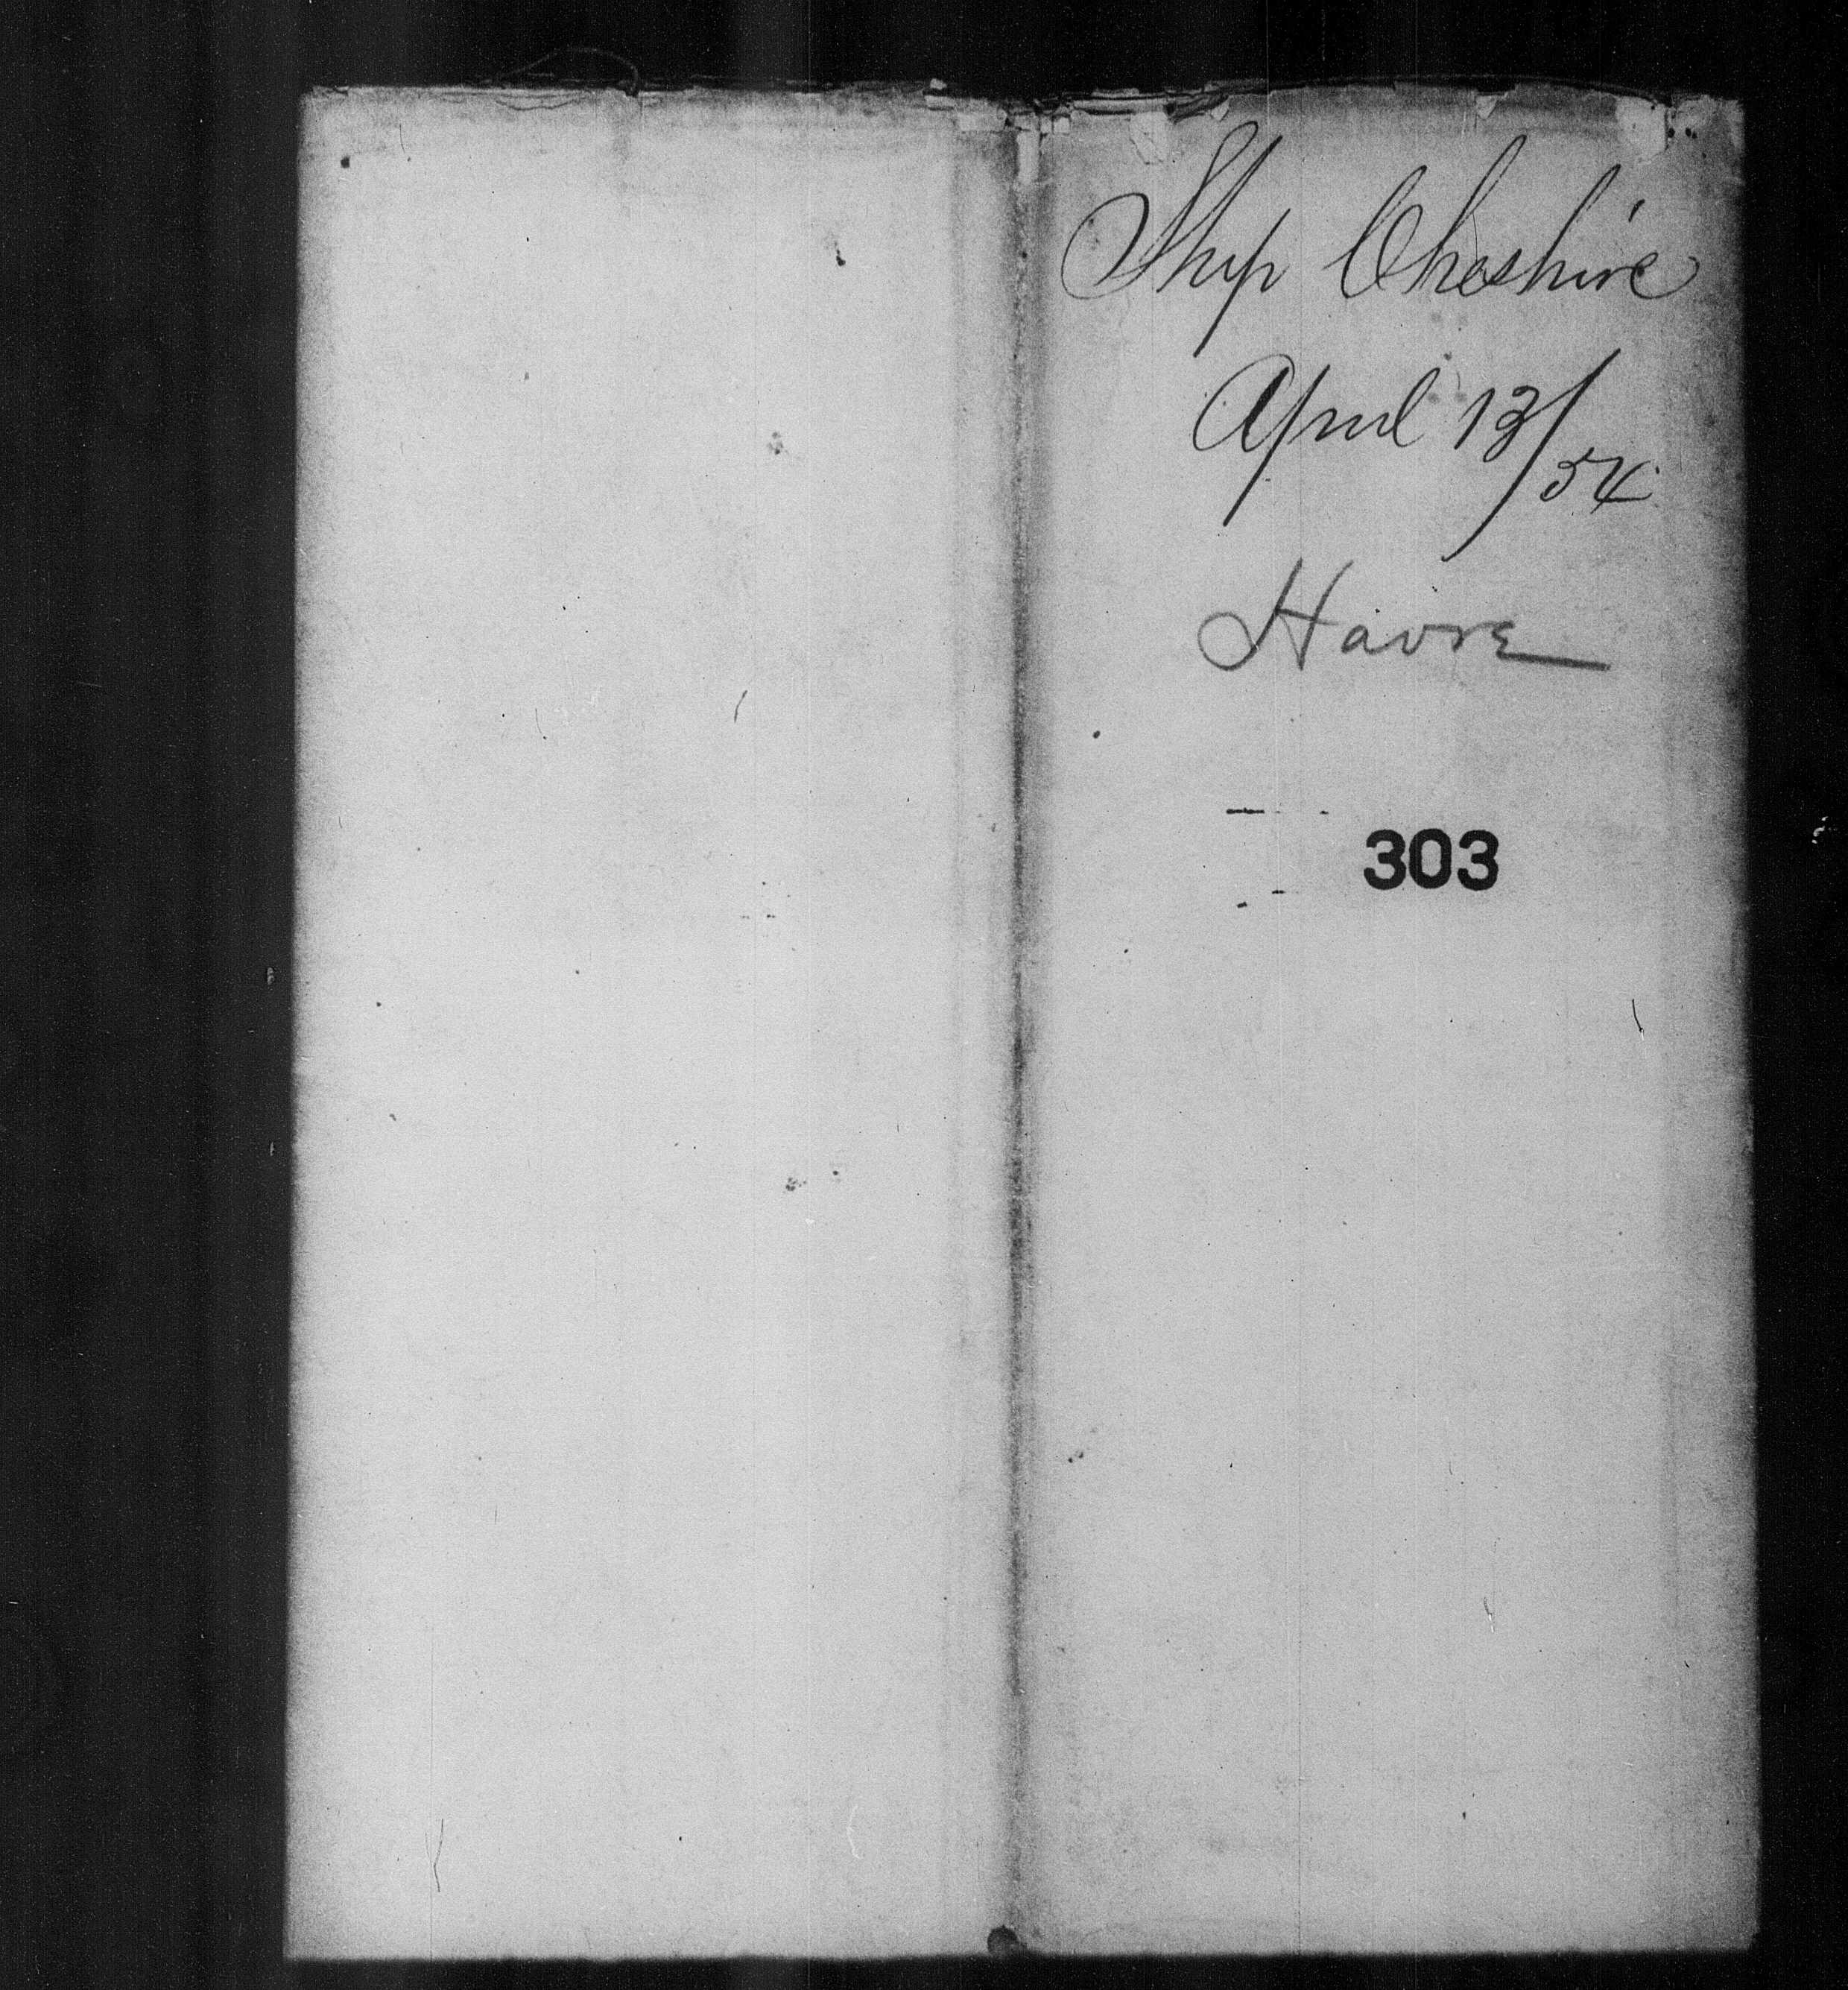 Ship Cheshire
April 13/54
Havre
303